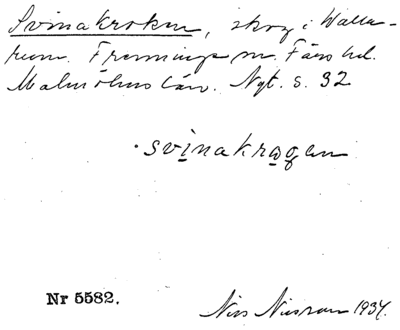 Svinakroken, skog i Walla-
rum. Frenninge sn. Färs hd.
Malmöhus län. Nyt. s. 32
svinakrǫgen
Nr 5582.
Nils Nilsson 1934.